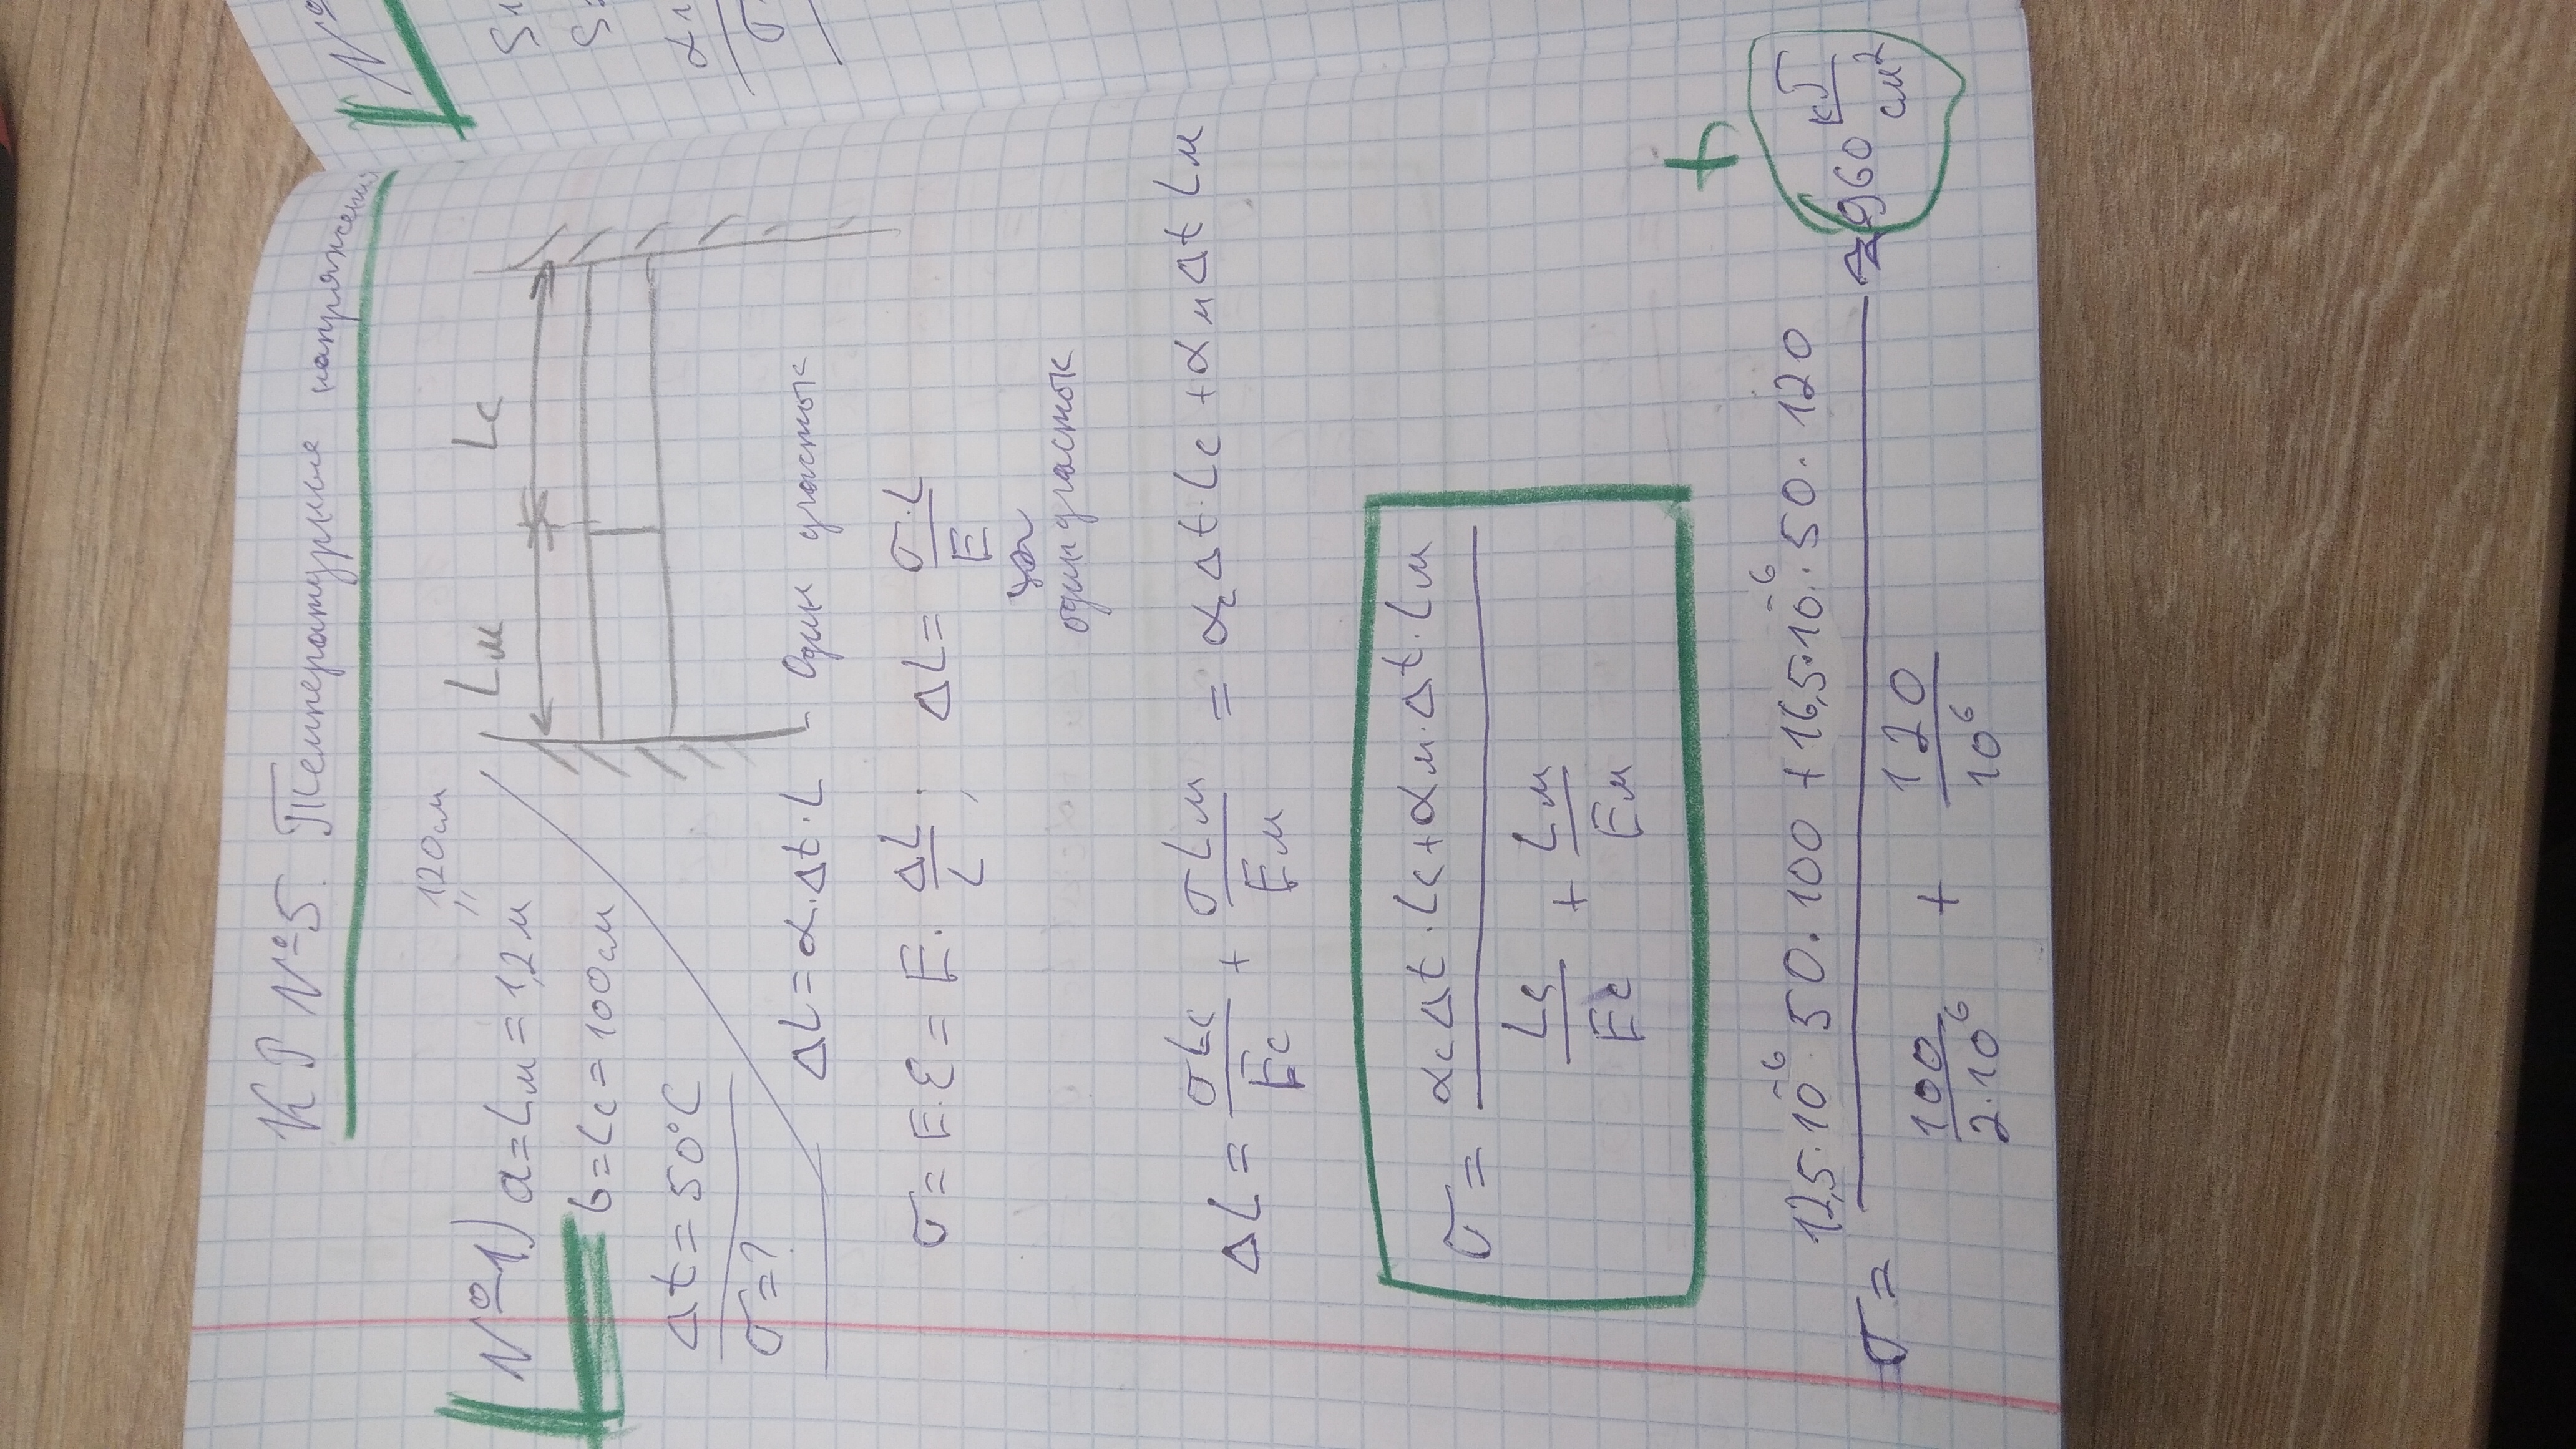 КР №5. Температурные напряжения
120см
"
№1) a = Lм = 1,2 м
b = Lc = 100 см
Δt = 50°C
σ = ?
Lм Lc
ΔL = α·Δt·L - Один участок
σ = E·ε = E· ΔL/L ; ΔL = σ·L/E
один участок
ΔL = σLc/Ec + σLм/Eм = αcΔt·Lc + αмΔt Lм
σ = (αcΔt·Lc + αм·Δt·Lм)/(Lc/Ec + Lм/Eм)
+
σ = (12,5·10⁻⁶·50·100 + 16,5·10⁻⁶·50·120)/(100/2·10⁶ + 120/10⁶) ≈ 960 кГ/см²
№
S1
S
α1
σ